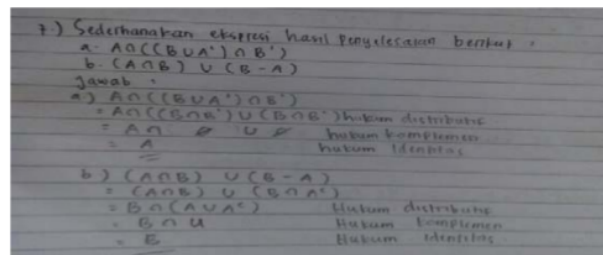 7.) Sederhanakan ekspresi hasil penyelesaian berikut :
a. A∩((B∪A')∩B')
b. (A∩B) ∪ (B-A)
Jawab :
a) A∩((B∪A')∩B')
= A∩((B∩B')∪(B∩B') hukum distributif
= A∩ ∅ ∪ ∅ hukum komplemen
= A hukum Identitas
b) (A∩B) ∪ (B-A)
= (A∩B) ∪ (B∩Aᶜ)
= B∩(A∪Aᶜ) Hukum distributif
= B∩U Hukum komplemen
= B Hukum identitas